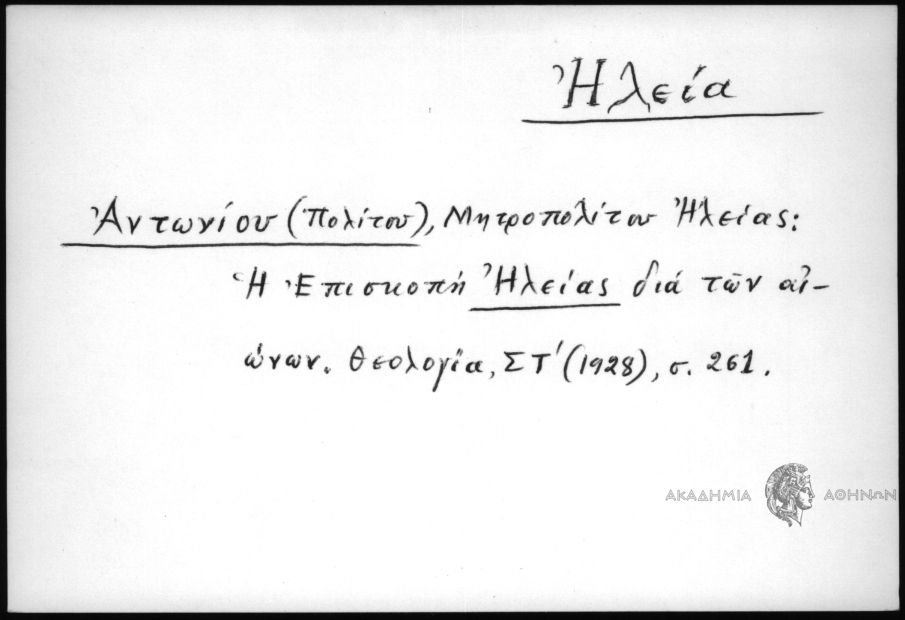 Ἠλεία
Ἀντωνίου (Πολίτου), Μητροπολίτου Ἠλείας:
Ἡ Ἐπισκοπή Ἠλείας διά τῶν αἰ-
ώνων. Θεολογία, ΣΤ' (1928), σ. 261.
ΑΚΑΔΗΜΙΑ ΑΘΗΝΩΝ